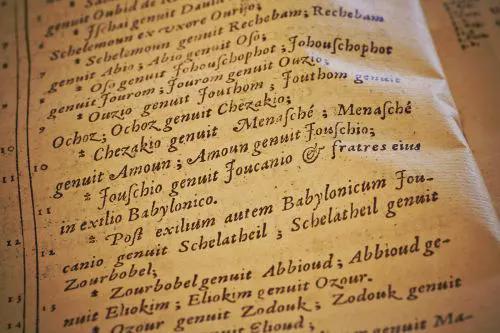 genuit Oubid de R
* Jschai genuit Daui
Schelemoun ex vxore Ourijo;
7 * Schelemoun genuit Rechebam; Rechebam
genuit Abio; Abio genuit Oso;
8 * Oso genuit Johouschophot; Johouschophot
genuit Jourom; Jourom genuit Ouzio;
9 * Ouzio genuit Jouthom; Jouthom genuit
Ochoz; Ochoz genuit Chezakio;
10 * Chezakio genuit Menasché; Menasché
genuit Amoun; Amoun genuit Jouschio;
11 * Jouschio genuit Joucanio & fratres eius
in exilio Babylonico.
12 * Post exilium autem Babylonicum Jou-
canio genuit Schelatheil; Schelatheil genuit
Zourbobel;
13 * Zourbobel genuit Abbioud; Abbioud ge-
nuit Eliokim; Eliokim genuit Ozour.
14 * Ozour genuit Zodouk; Zodouk genuit
genuit Elioud;